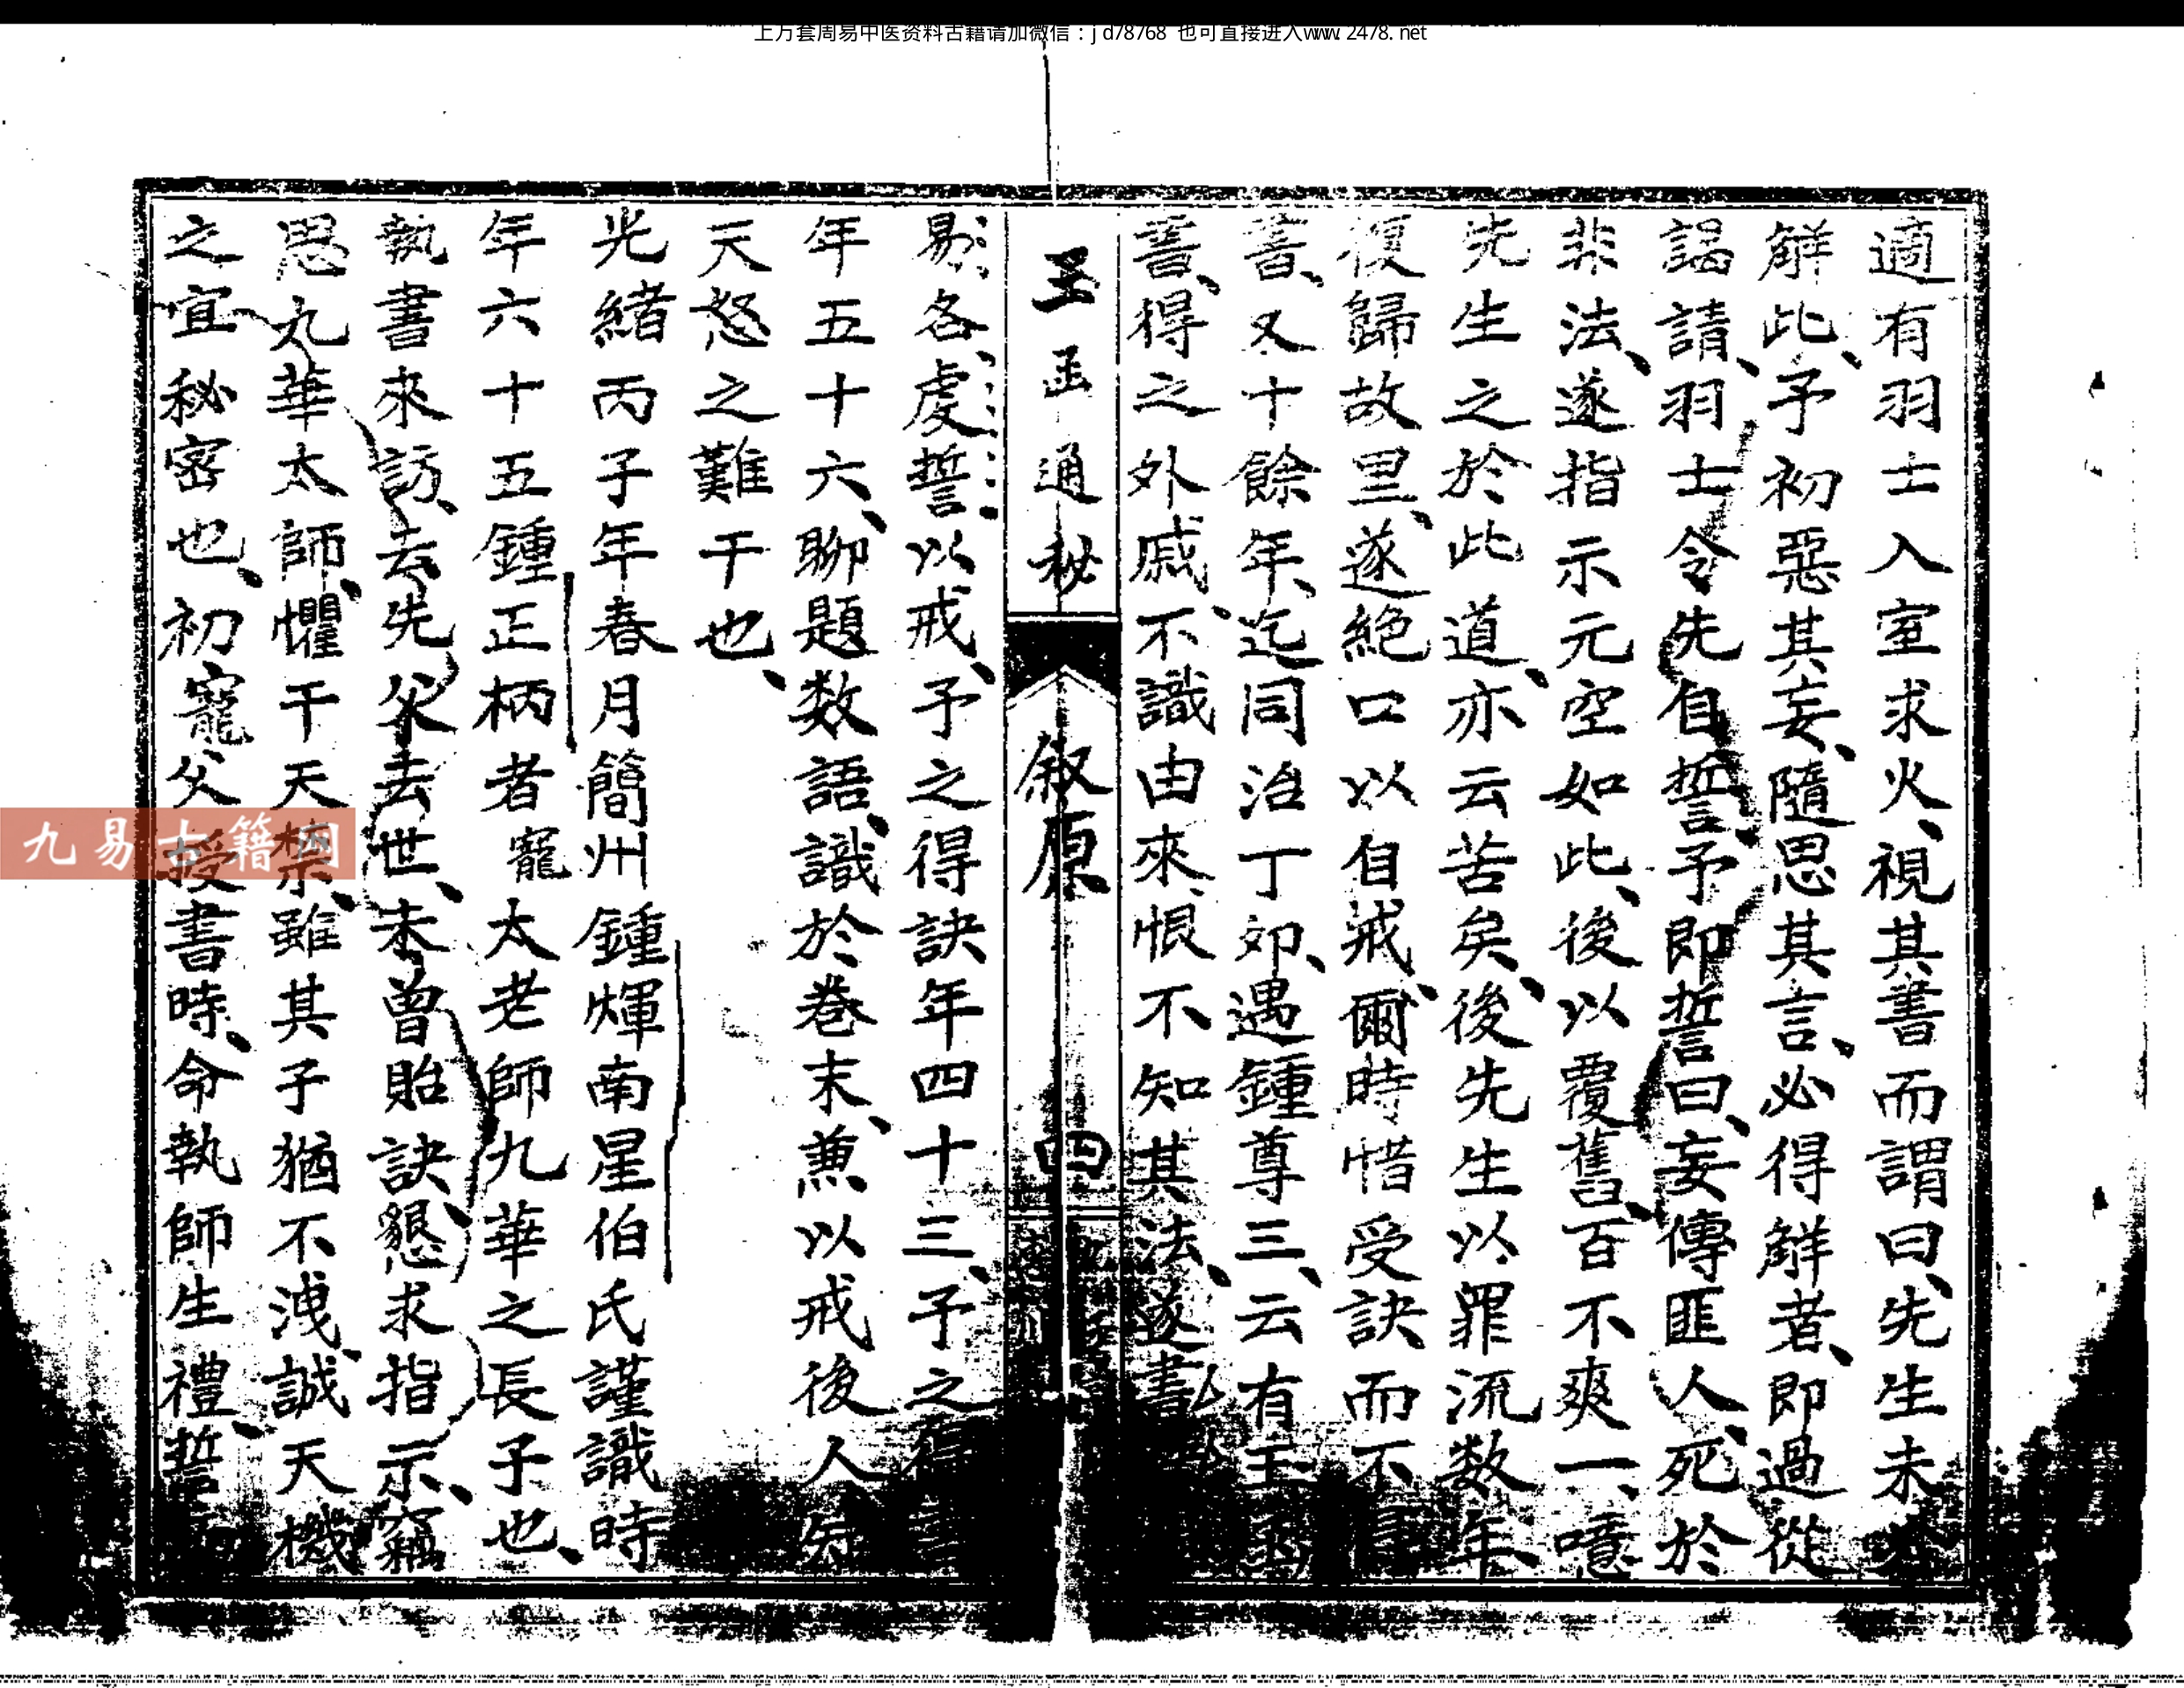 上万套周易中医资料古籍请加微信：jd78768 也可直接进入www.2478.net
適有羽士入室求火、視其書而謂曰、先生未
解此、予初惡其妄、隨思其言、必得解者、即過從
謁請、羽士令先自誓、予即誓曰、妄傳匪人、死於
非法、遂指示元空如此、後以覆舊、百不爽一、噫
先生之於此道、亦云苦矣、後先生以罪流数年
復歸故里、遂絕口以自戒、爾時惜受訣而不得
書、又十餘年、迄同治丁卯、遇鍾尊三、云有玉函
書、得之外戚、不識由來、恨不知其法、遂書
玉函通秘
叙原
四
易、各處誓以戒、予之得訣年四十三、予之得書
年五十六、聊題数語、識於卷末、兼以戒後人知
天怒之難干也、
光緒丙子年春月簡州鍾煇南星伯氏謹識時
年六十五鍾正柄者寵太老師九華之長子也、
執書來訪、去先父去世、未曾貽訣、懇求指示、竊
思九華太師、懼干天禁、雖其子猶不洩、誠天機
之宜秘密也、初寵父授書時、命執師生禮、誓
九易古籍网